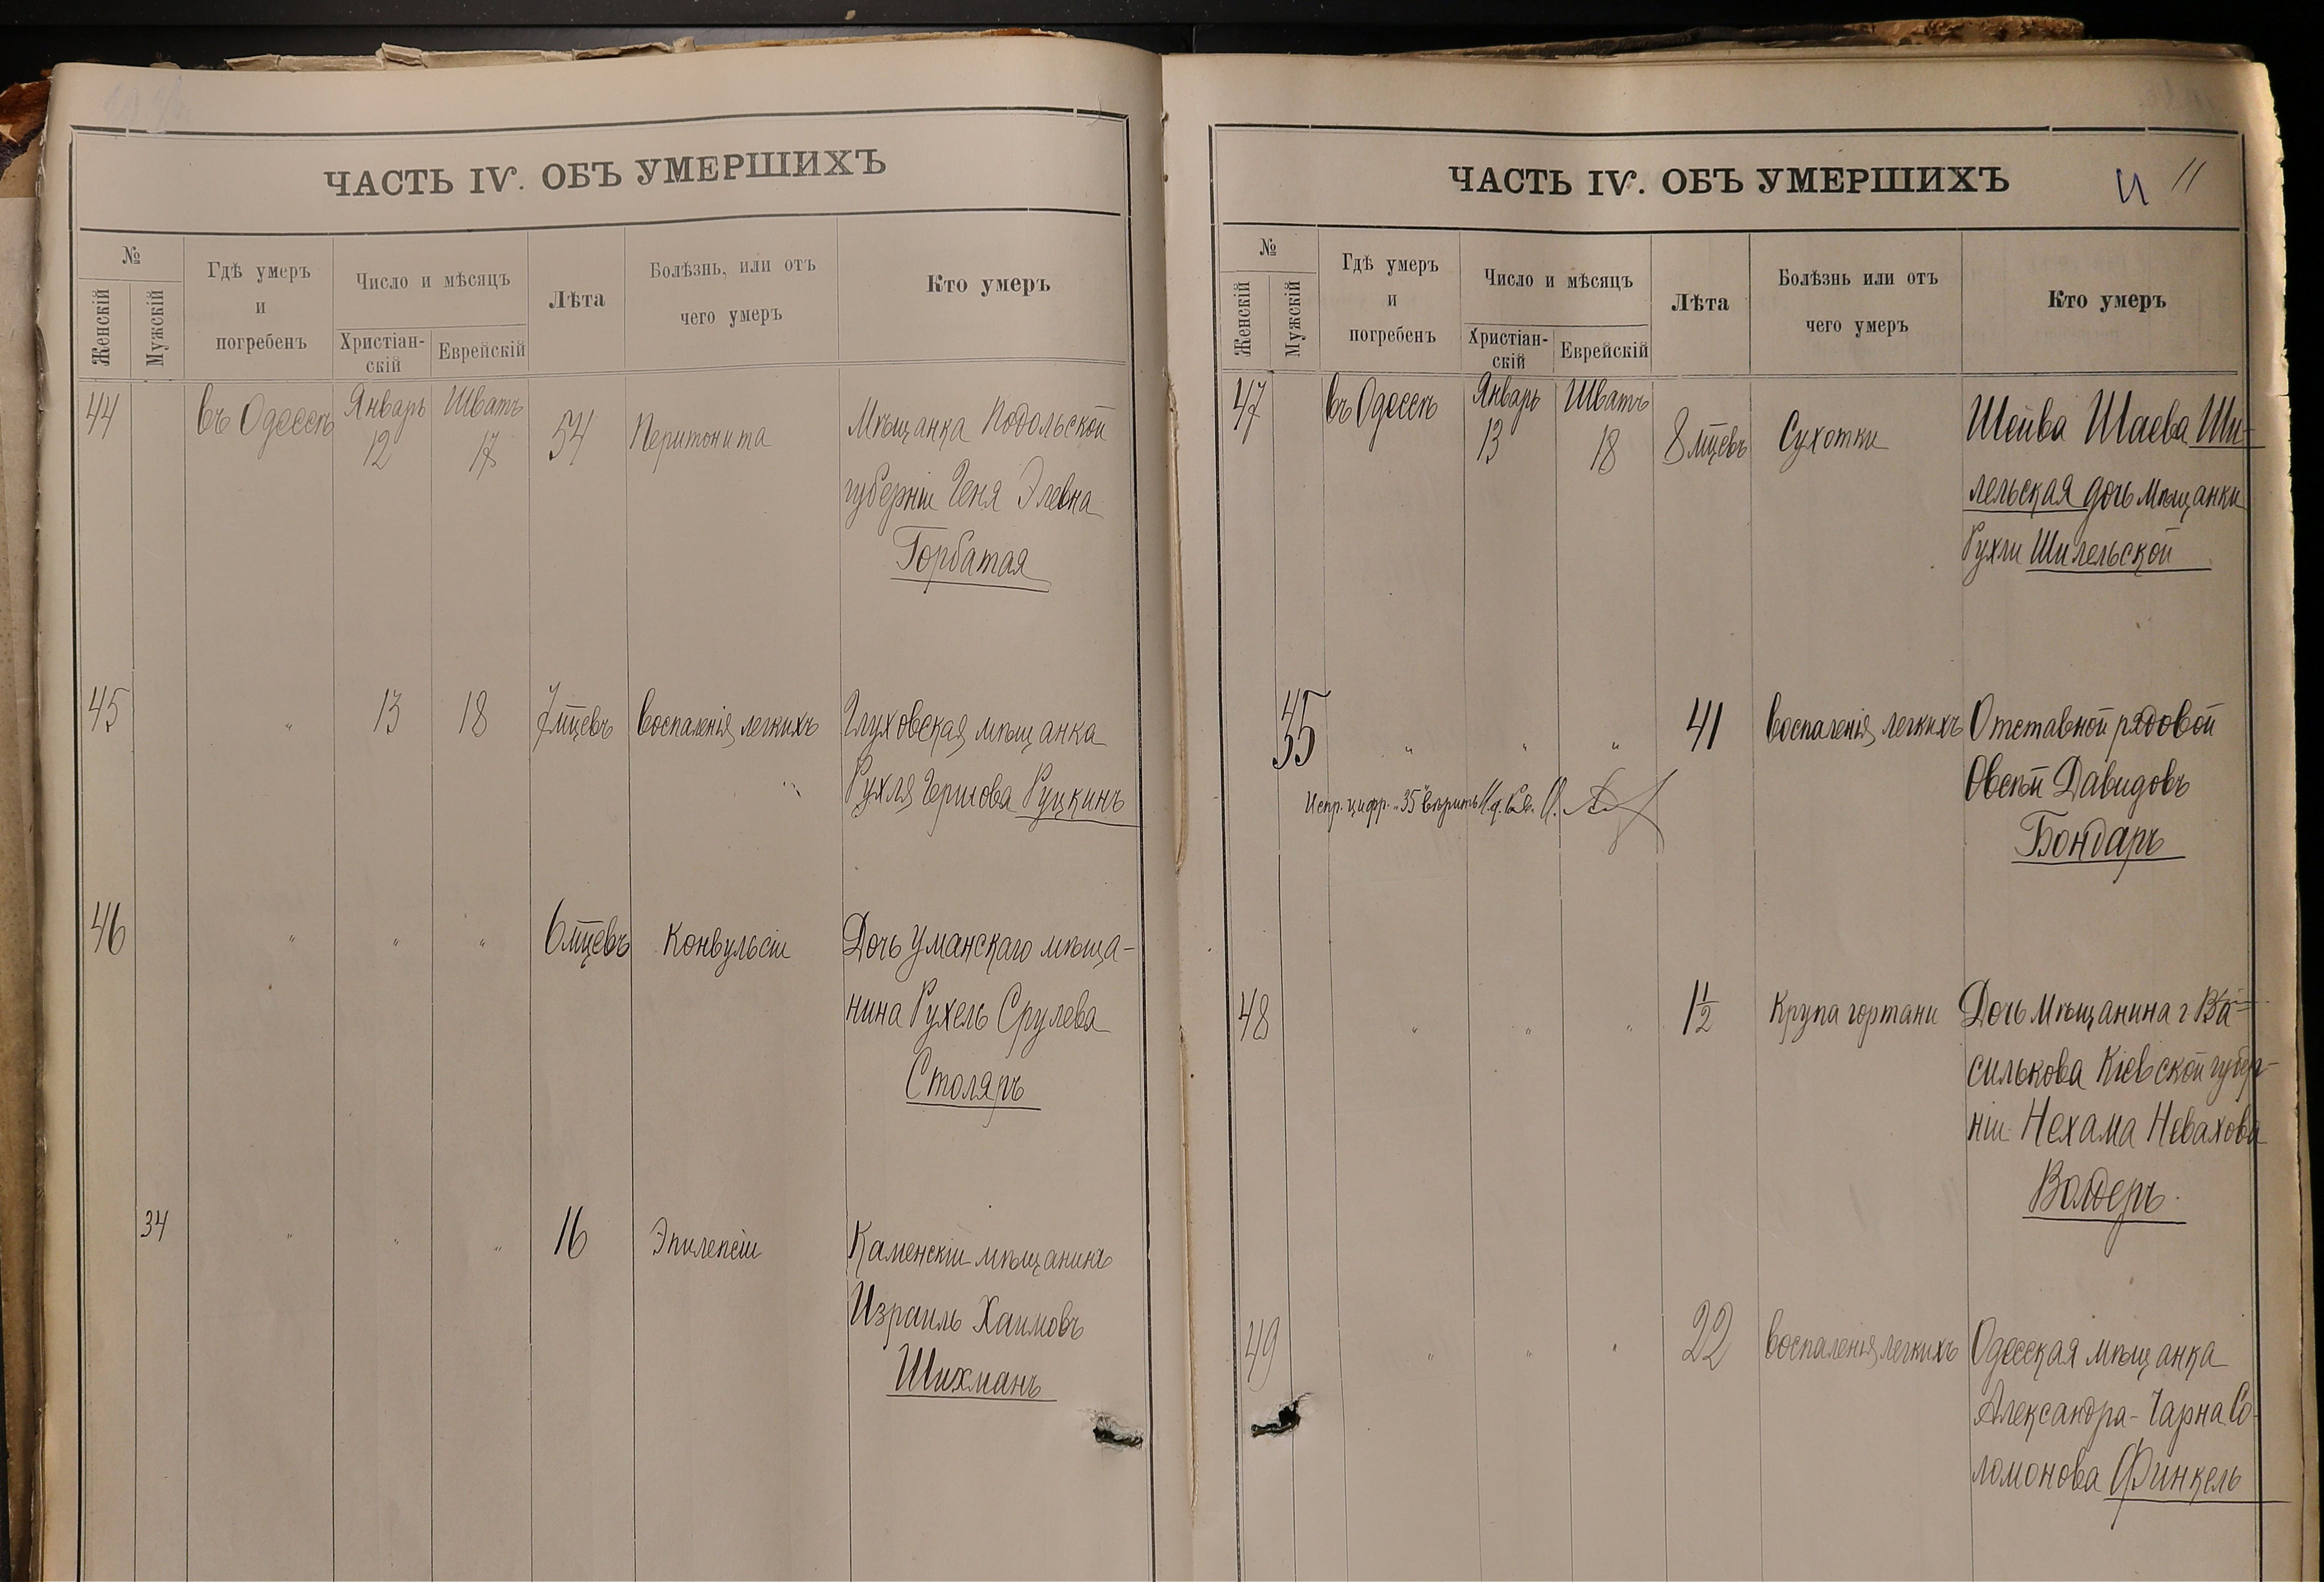 ЧАСТЬ IV. ОБЪ УМЕРШИХЪ
№
Женскій
Мужскій
Гдѣ умеръ
и
погребенъ
Число и мѣсяцъ
Христіан-
скій
Еврейскій
Лѣта
Болѣзнь, или отъ
чего умеръ
Кто умеръ
44 въ Одессѣ Январь 12 Шватъ 17 54 Перитонита Мѣщанка Подольской
губерніи Геня Элевна
Горбатая
45 " 13 18 7 мцевъ Воспаленія легкихъ Глуховская мѣщанка
Рухля Гершова Руцкинъ
46 " " " 6 мцевъ Конвульсіи Дочь Уманскаго мѣща-
нина Рухель Срулева
Столяръ
34 " " " 16 Эпилепсіи Каменскій мѣщанинъ
Израиль Хаимовъ
Шихманъ
ЧАСТЬ IV. ОБЪ УМЕРШИХЪ
11 11
№
Женскій
Мужскій
Гдѣ умеръ
и
погребенъ
Число и мѣсяцъ
Христіан-
скій
Еврейскій
Лѣта
Болѣзнь или отъ
чего умеръ
Кто умеръ
47 въ Одессѣ Январь 13 Шватъ 18 8 мцевъ Сухотки Шейва Шаева Ши-
лельская дочь мѣщанки
Рухли Шилельской
35 " " " 41 Воспаленія легкихъ Отставной рядовой
Овсѣй Давидовъ
Бондарь
Испр. цифр. "35" вѣрить
48 " " " 1½ Крупа гортани Дочь мѣщанина г. Ва-
силькова Кіевской губер-
ніи Нехама Невахова
Волдеръ
49 " " " 22 Воспаленія легкихъ Одесская мѣщанка
Александра-Чарна Со-
ломонова Финкель